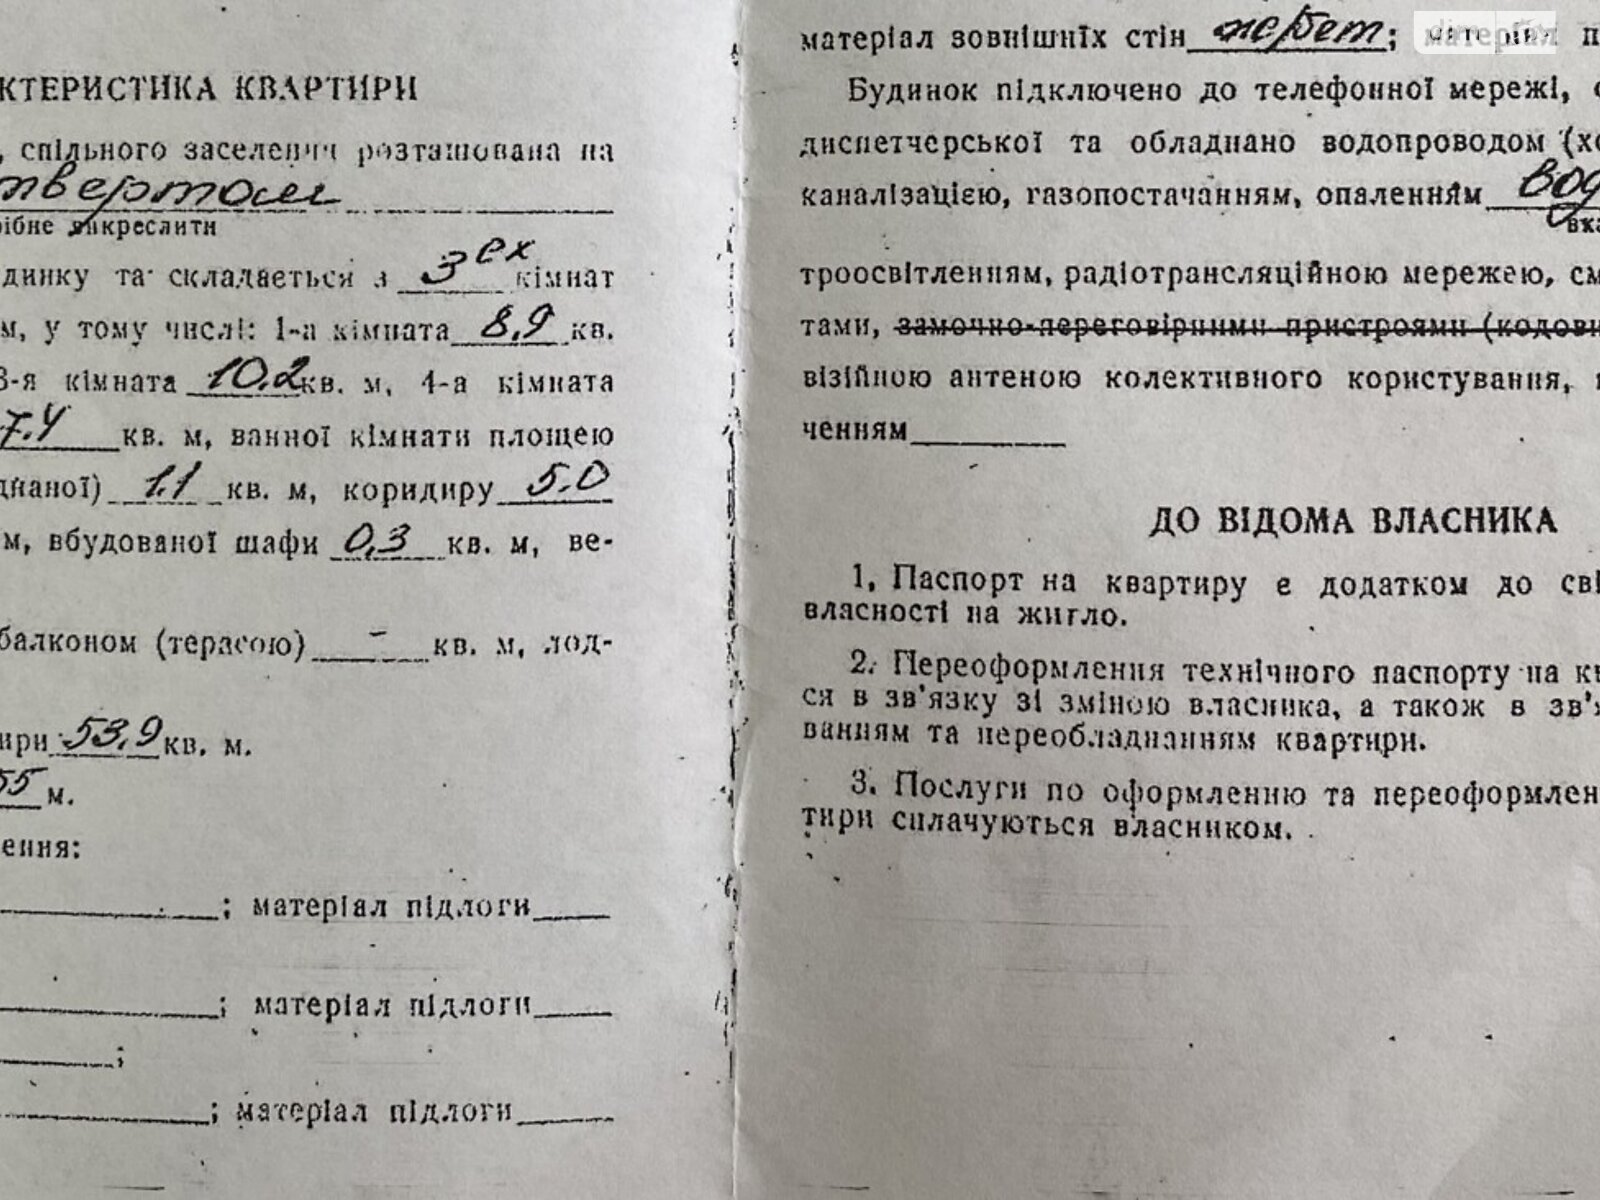 КТЕРИСТИКА КВАРТИРИ
, спільного заселення розташована на
твертом
рібне закреслити
динку та складається з 3ех кімнат
м, у тому числі: 1-а кімната 8,9 кв.
3-я кімната 10.2 кв. м, 4-а кімната
7.4 кв. м, ванної кімнати площею
днаної) 1.1 кв. м, коридиру 5.0
м, вбудованої шафи 0,3 кв. м, ве-
балконом (терасою) - кв. м, лод-
ири 53,9 кв. м.
55 м.
ення:
; матеріал підлоги
; матеріал підлоги
;
; матеріал підлоги
матеріал зовнішніх стін ; матеріал п
Будинок підключено до телефонної мережі,
диспетчерської та обладнано водопроводом (хо
каналізацією, газопостачанням, опаленням вод
вка
троосвітленням, радіотрансляційною мережею, см
тами, замочно-переговірними пристроями (кодови
візійною антеною колективного користування,
ченням
ДО ВІДОМА ВЛАСНИКА
1, Паспорт на квартиру є додатком до сві
власності на житло.
2. Переоформлення технічного паспорту на кв
ся в зв'язку зі зміною власника, а також в зв'я
ванням та переобладнанням квартири.
3. Послуги по оформленню та переоформлен
тири сплачуються власником.